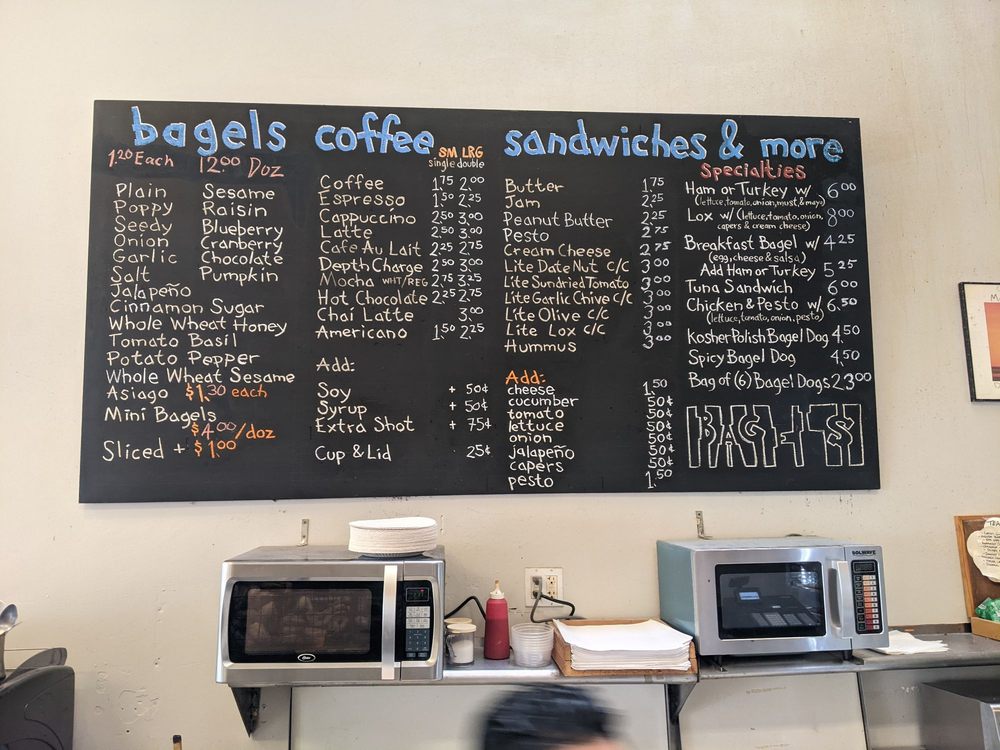 bagels
1.20 Each 12.00 Doz
Plain Sesame
Poppy Raisin
Seedy Blueberry
Onion Cranberry
Garlic Chocolate
Salt Pumpkin
Jalapeño
Cinnamon Sugar
Whole Wheat Honey
Tomato Basil
Potato Pepper
Whole Wheat Sesame
Asiago $1.30 each
Mini Bagels
$4.00/doz
Sliced + $1.00
coffee
SM LRG
single double
Coffee 1.75 2.00
Espresso 1.50 2.25
Cappuccino 2.50 3.00
Latte 2.50 3.00
Cafe Au Lait 2.25 2.75
Depth Charge 2.50 3.00
Mocha WHT/REG 2.75 3.25
Hot Chocolate 2.25 2.75
Chai Latte 3.00
Americano 1.50 2.25
Add:
Soy + 50¢
Syrup + 50¢
Extra Shot + 75¢
Cup & Lid 25¢
sandwiches & more
Butter 1.75
Jam 2.25
Peanut Butter 2.25
Pesto 2.75
Cream Cheese 2.75
Lite Date Nut c/c 3.00
Lite Sundried Tomato 3.00
Lite Garlic Chive c/c 3.00
Lite Olive c/c 3.00
Lite Lox c/c 3.00
Hummus 3.00
Add:
cheese 1.50
cucumber 50¢
tomato 50¢
lettuce 50¢
onion 50¢
jalapeño 50¢
capers 50¢
pesto 1.50
Specialties
Ham or Turkey w/ 6.00
(lettuce, tomato, onion, must, & mayo)
Lox w/ (lettuce, tomato, onion, 8.00
capers & cream cheese)
Breakfast Bagel w/ 4.25
(egg, cheese & salsa)
Add Ham or Turkey 5.25
Tuna Sandwich 6.00
Chicken & Pesto w/ 6.50
(lettuce, tomato, onion, pesto)
Kosher Polish Bagel Dog 4.50
Spicy Bagel Dog 4.50
Bag of (6) Bagel Dogs 23.00
Oster
SOLWAVE